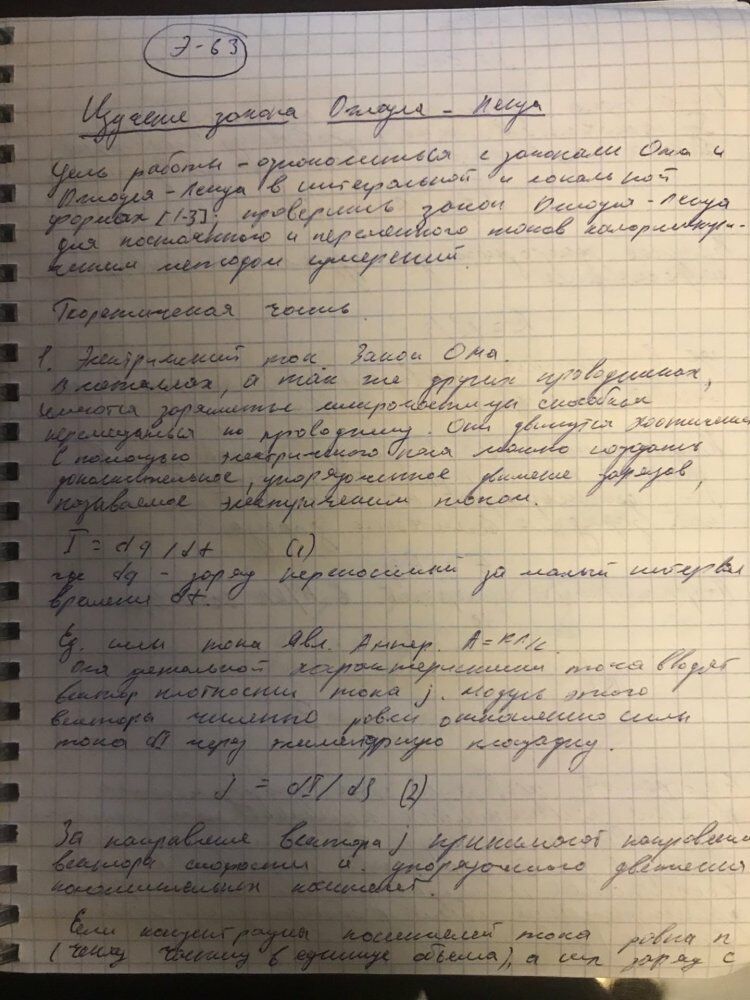 Э-63
Изучение закона Джоуля - Ленца
Цель работы - ознакомиться с законами Ома и
Джоуля - Ленца в интегральной и локальной
формах [1-3]; проверить закон Джоуля - Ленца
для постоянного и переменного токов калориметри-
ческим методом измерений.
Теоретическая часть
1. Электрический ток. Закон Ома.
В металлах, а так же других проводниках,
имеются заряженные микрочастицы способные
перемещаться по проводнику. Они движутся хаотически
С помощью электрического поля можно создать
упорядоченное движение зарядов,
называемое электрическим током.
I = dq / dt (1)
где dq - заряд переносимый за малый интервал
времени dt.
Ед. силы тока явл. Ампер. А = Кл/с.
Для детальной характеристики тока вводят
вектор плотности тока j. Модуль этого
вектора численно равен отношению силы
тока dI через площадку.
j = dI / dS (2)
За направление вектора j принимают направление
вектора скорости упорядоченного движения
положительных носителей.
Если концентрация носителей тока равна n
(числу частиц в единице объема), а их заряд e